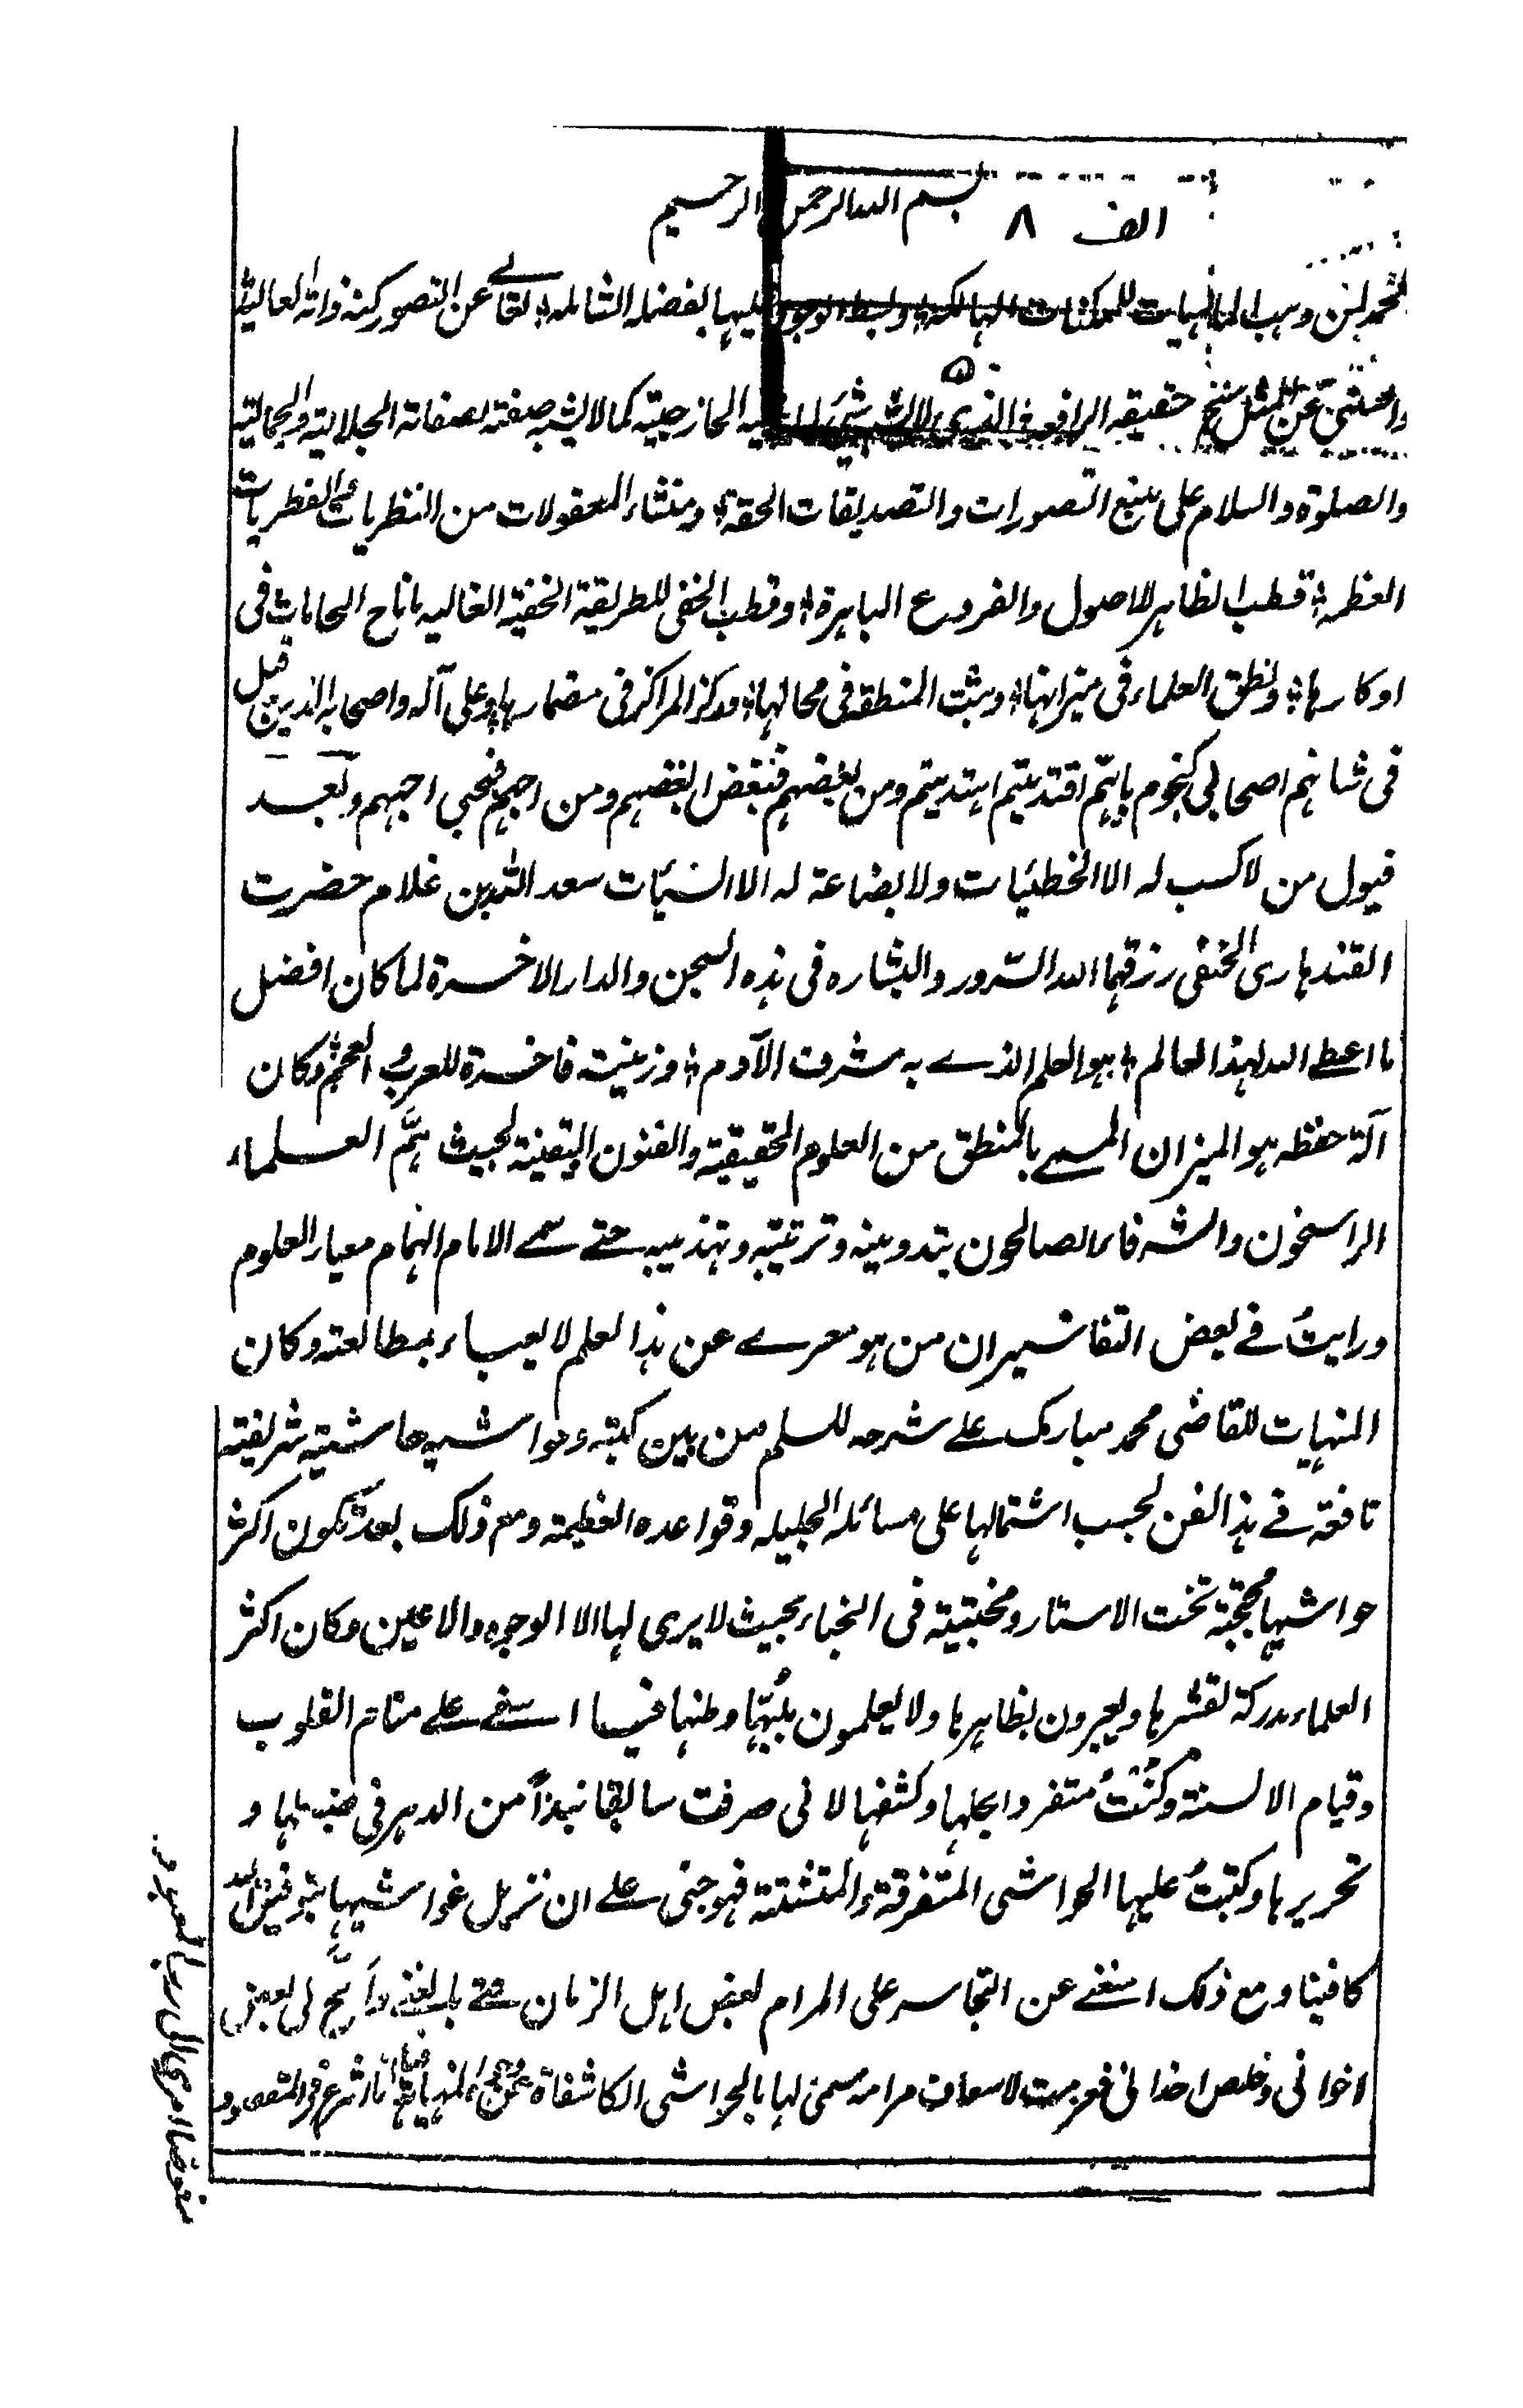 بسم الله الرحمن الرحيم
الف ٨
الحمد لمن وهب الماهيات للممكنات الهالكة ولبسط الوجود عليها بفضله الشاملة تعالى عن التصور كنه ذاته العالية
عن المثل حقيقه الرافعة الذي لا شيء الخارجية كما لا يشبه صفته لصفاته الجلالية والجمالية
والصلوة والسلام على منبع التصورات والتصديقات الحقة ومنشاء المعقولات من النظريات والفطريات
قطب الظاهر للاصول والفروع الباهرة وقطب الخفى للطريقة الخفية الغاليه ما ناح الحمامات فى
اوكارها ونطق العلماء فى ميزانها وبثت المنطقة فى محالها ومركز المراكز فى مضمارها وعلى آله واصحابه الذين قيل
فى شانهم اصحابي كنجوم بايهم اقتديتم اهتديتم ومن بغضهم فببغض ابغضهم ومن احبهم فبحبى احبهم وبعد
فيول من لا كسب له الا الخطيئات ولا بضاعة له الا السيئات سعد الله بن غلام حضرت
القندهارى الحنفى رزقهما الله السرور والبشاره فى هذه السجن والدار الاخرة لما كان افضل
ما اعطى الله لهذا العالم هو العلم الذے به شرف الآدم وزينة فاخرة للعرب والعجم وكان
آلة حفظه هو الميزان المسمے بالمنطق من العلوم الحقيقية والفنون اليقينية بحيث همّ العلماء
الراسخون والشرفاء الصالحون بتدوينه وترتيبه وتهذيبه حتے سمے الامام الهمام معيار العلوم
ورايتُ فے بعض التفاسير ان من هو معرے عن هذا العلم لا يعباء بمطالعته وكان
المنهيات للقاضى محمد مبارك علے شرحه للسلم من بين كتبه وحواشيه حاشية شريفة
نافعة فے هذا الفن لحسب اشتمالها على مسائله الجليله وقواعده العظيمة ومع ذلك بعد تكون اكثر
حواشيها محجبة تحت الاستار ومختبئة فى الخباء بحيث لا يرى لها الا الوجوه والاعين وكان اكثر
العلماء مدركة لقشرها ويعبرون بظاهرها ولا يعلمون بلبها وبطنها فيا اسفے علے منام القلوب
وقيام الالسنة وكنتُ متفردا بحلها وكشفها لانى صرفت سابقا نبذاً من الدهر فى ضبطها و
تحريرها وكتبتُ عليها الحواشى المتفرقة والمتشتتة فهو جنى علے ان نزيل غواشيها بتوفيق الله
كافينا ومع ذلك امنعنے عن التجاسر على المرام بعض اهل الزمان حتے لى بعض
اخوانى وخلص اخدانى فعزمت لاسعاف مرامه سمى لها بالحواشى الكاشفاة عن المنهيات انا اشرع فى المقصود
مفوضا امرى الى رب المعبود